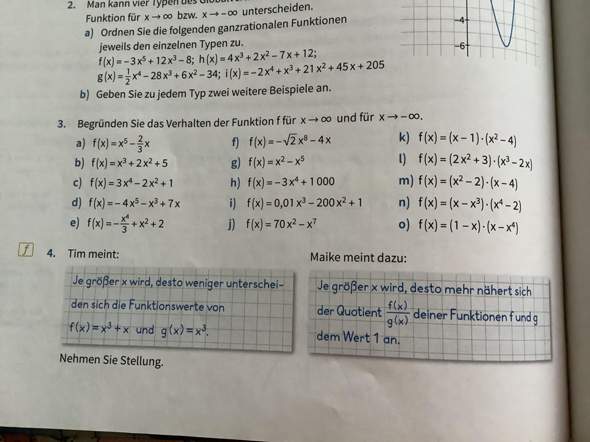 2. Man kann vier Typen des Globalver
Funktion für x→∞ bzw. x→−∞ unterscheiden.
a) Ordnen Sie die folgenden ganzrationalen Funktionen
jeweils den einzelnen Typen zu.
f(x) = −3x⁵ + 12x³ − 8; h(x) = 4x³ + 2x² − 7x + 12;
g(x) = ½x⁴ − 28x³ + 6x² − 34; i(x) = −2x⁴ + x³ + 21x² + 45x + 205
b) Geben Sie zu jedem Typ zwei weitere Beispiele an.
−4
−6
3. Begründen Sie das Verhalten der Funktion f für x→∞ und für x→−∞.
a) f(x) = x⁵ − 2/3 x
b) f(x) = x³ + 2x² + 5
c) f(x) = 3x⁴ − 2x² + 1
d) f(x) = −4x⁵ − x³ + 7x
e) f(x) = −x⁴/3 + x² + 2
f) f(x) = −√2 x⁸ − 4x
g) f(x) = x² − x⁵
h) f(x) = −3x⁴ + 1 000
i) f(x) = 0,01x³ − 200x² + 1
j) f(x) = 70x² − x⁷
k) f(x) = (x − 1)·(x² − 4)
l) f(x) = (2x² + 3)·(x³ − 2x)
m) f(x) = (x² − 2)·(x − 4)
n) f(x) = (x − x³)·(x⁴ − 2)
o) f(x) = (1 − x)·(x − x⁴)
f 4. Tim meint:
Je größer x wird, desto weniger unterschei-
den sich die Funktionswerte von
f(x) = x³ + x und g(x) = x³.
Maike meint dazu:
Je größer x wird, desto mehr nähert sich
der Quotient f(x)/g(x) deiner Funktionen f und g
dem Wert 1 an.
Nehmen Sie Stellung.